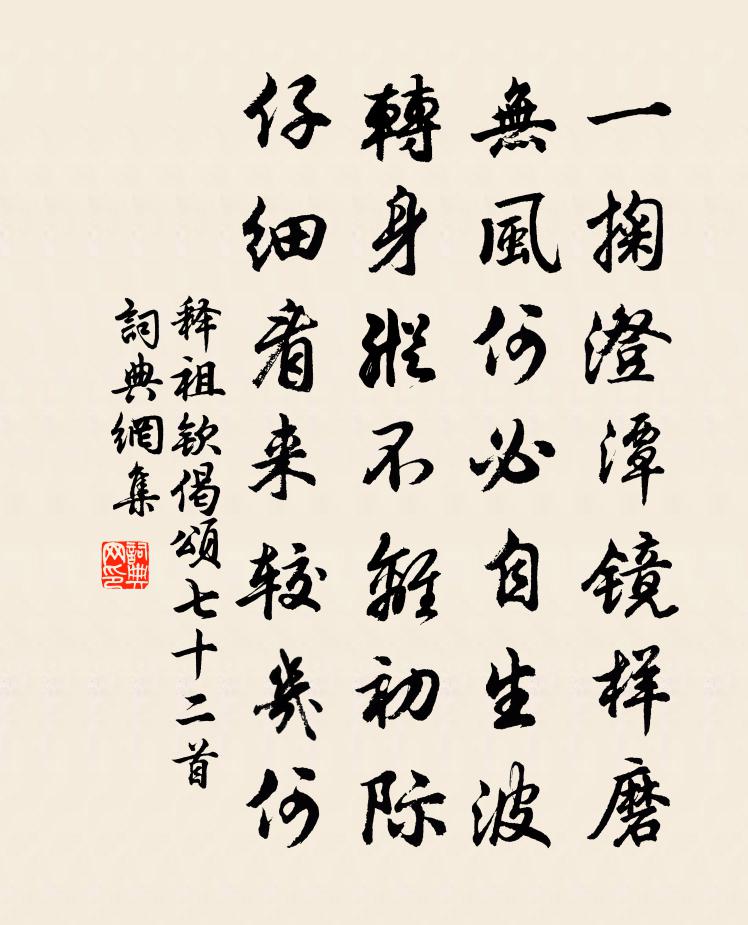 一掬澄潭镜样磨
無風何必自生波
轉身縱不離初际
仔细看来较幾何
释祖钦偈頌七十二首
詞典網集
詞典网印